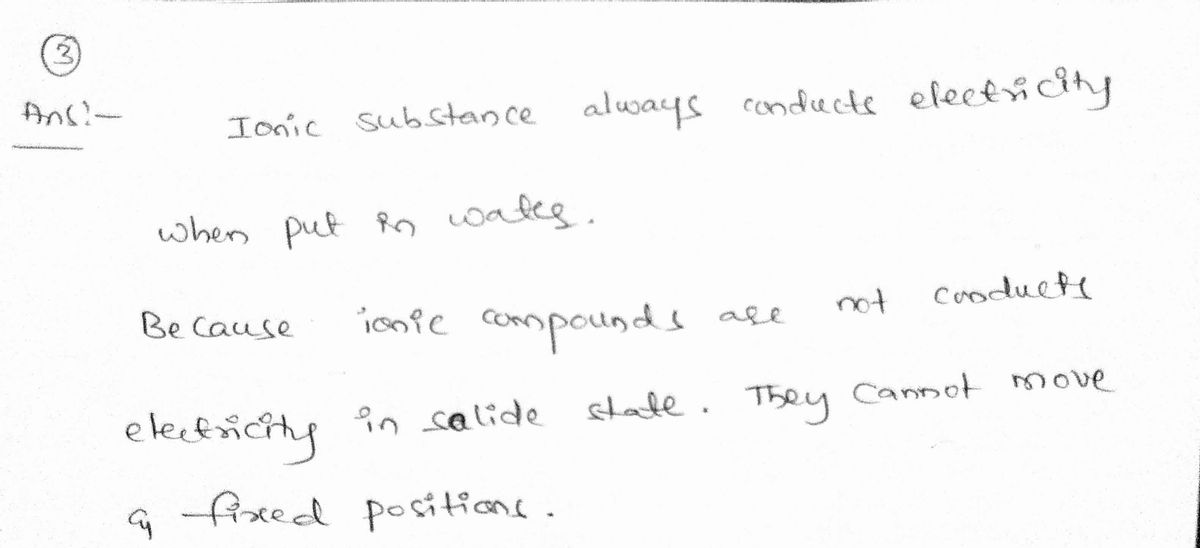 3
Ans:- Ionic substance always conducts electricity
when put in water.
Because ionic compounds are not conducts
electricity in salide state. They cannot move
fixed positions.